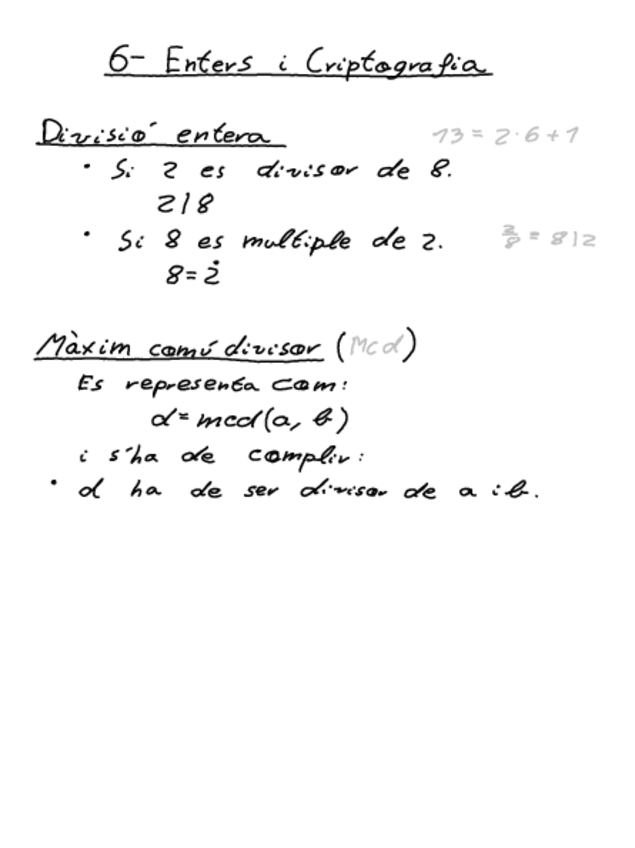 6- Enters i Criptografia
Divisió entera
13 = 2·6+1
· Si 2 es divisor de 8.
2|8
· Si 8 es multiple de 2.
2/8 = 8|2
8=2̇
Màxim comú divisor (Mcd)
Es representa com:
d=mcd(a, b)
i s'ha de complir:
· d ha de ser divisor de a i b.